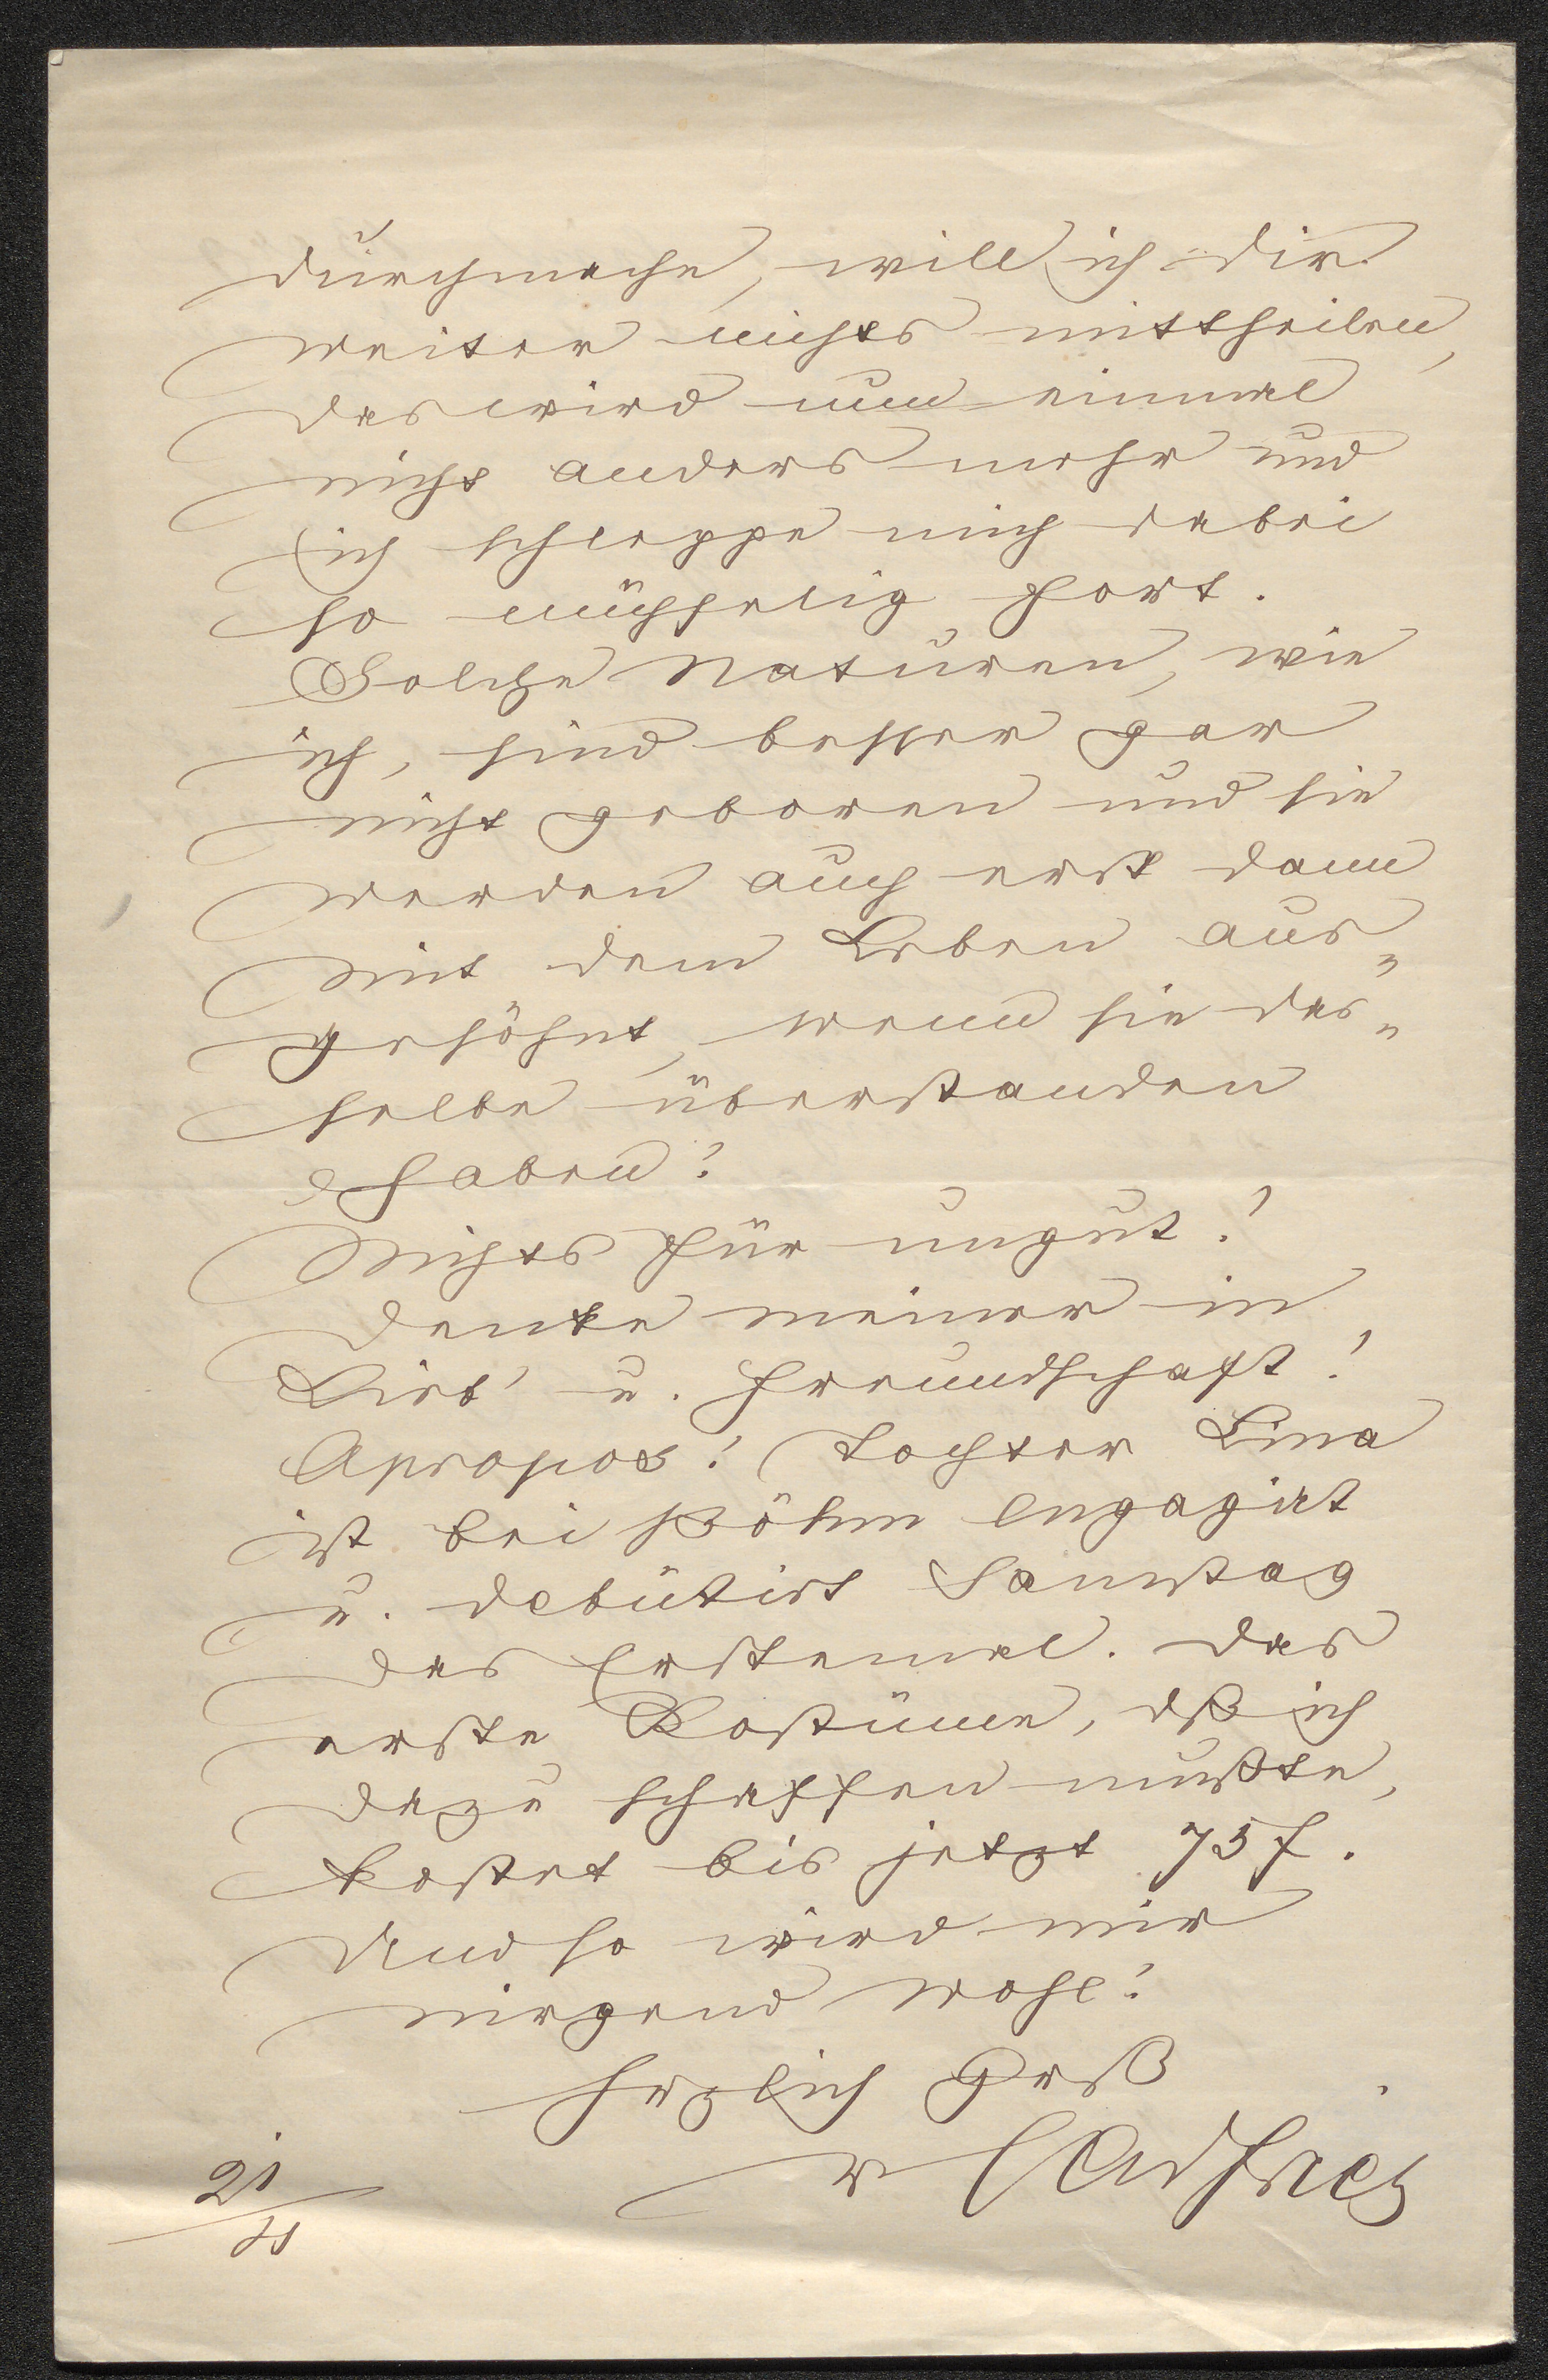 durchmache, will ich dir
weiter nichts mittheilen,
das wird nun einmal
nicht anders mehr und
ich schleppe mich dabei
so mühselig fort.
Solche Naturen, wie
ich, sind besser gar
nicht geboren und sie
werden auch erst dann
mit dem Leben aus=
gesöhnt, wenn sie das=
selbe überstanden
haben!
Nichts für ungut!
Denke meiner in
Lieb' u. Freundschaft!
Apropos! Tochter Lina
ist bei Böhm engagirt
u. debütirt Samstag
das Erstemal. Das
erste Kostüme, dß ich
dazu schaffen mußte,
kostet bis jetzt 75 f.
Und so wird mir
nirgend wohl!
Herzlich Gruß
21